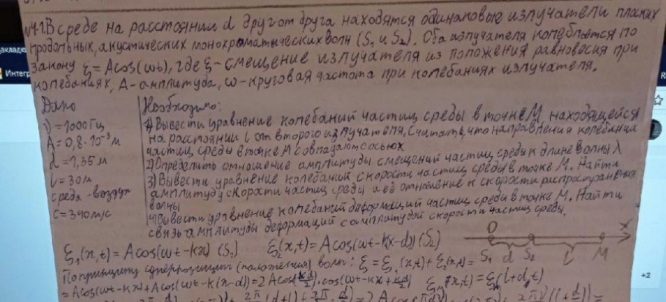 №4.1 В среде на расстоянии d друг от друга находятся одинаковые излучатели плоских
продольных, акустических монохроматических волн (S₁ и S₂). Оба излучателя колеблются по
закону ξ = Acos(ωt), где ξ - смещение излучателя из положения равновесия при
колебаниях, A - амплитуда, ω - круговая частота при колебаниях излучателя.
Дано
ν = 1000 Гц
A = 0,8·10⁻³ м
d = 1,35 м
l = 30 м
среда - воздух
c = 340 м/с
Необходимо:
1) Вывести уравнение колебаний частиц среды в точке M, находящейся
на расстоянии l от второго излучателя. Считать, что направления колебания
частиц среды в точке M совпадают с осью x
2) Определить отношение амплитуды смещений частиц среды к длине волны λ
3) Вывести уравнение колебаний скорости частиц среды в точке M. Найти
амплитуду скорости частиц среды и её отношение к скорости распространения
волны
4) Вывести уравнение колебаний деформаций частиц среды в точке M. Найти
связь амплитуды деформаций с амплитудой скорости частиц среды.
0 x
S₁ d S₂ l M
ξ₁(x,t) = Acos(ωt-kx) (S₁) ξ₂(x,t) = Acos(ωt-k(x-d)) (S₂)
По принципу суперпозиции (наложения) волн: ξ = ξ₁(x,t) + ξ₂(x,t) =
= Acos(ωt-kx) + Acos(ωt-k(x-d)) = 2Acos(kd/2)·cos(ωt-kx+kd/2) ξ(x,t) = ξ(l+d,t)
+2